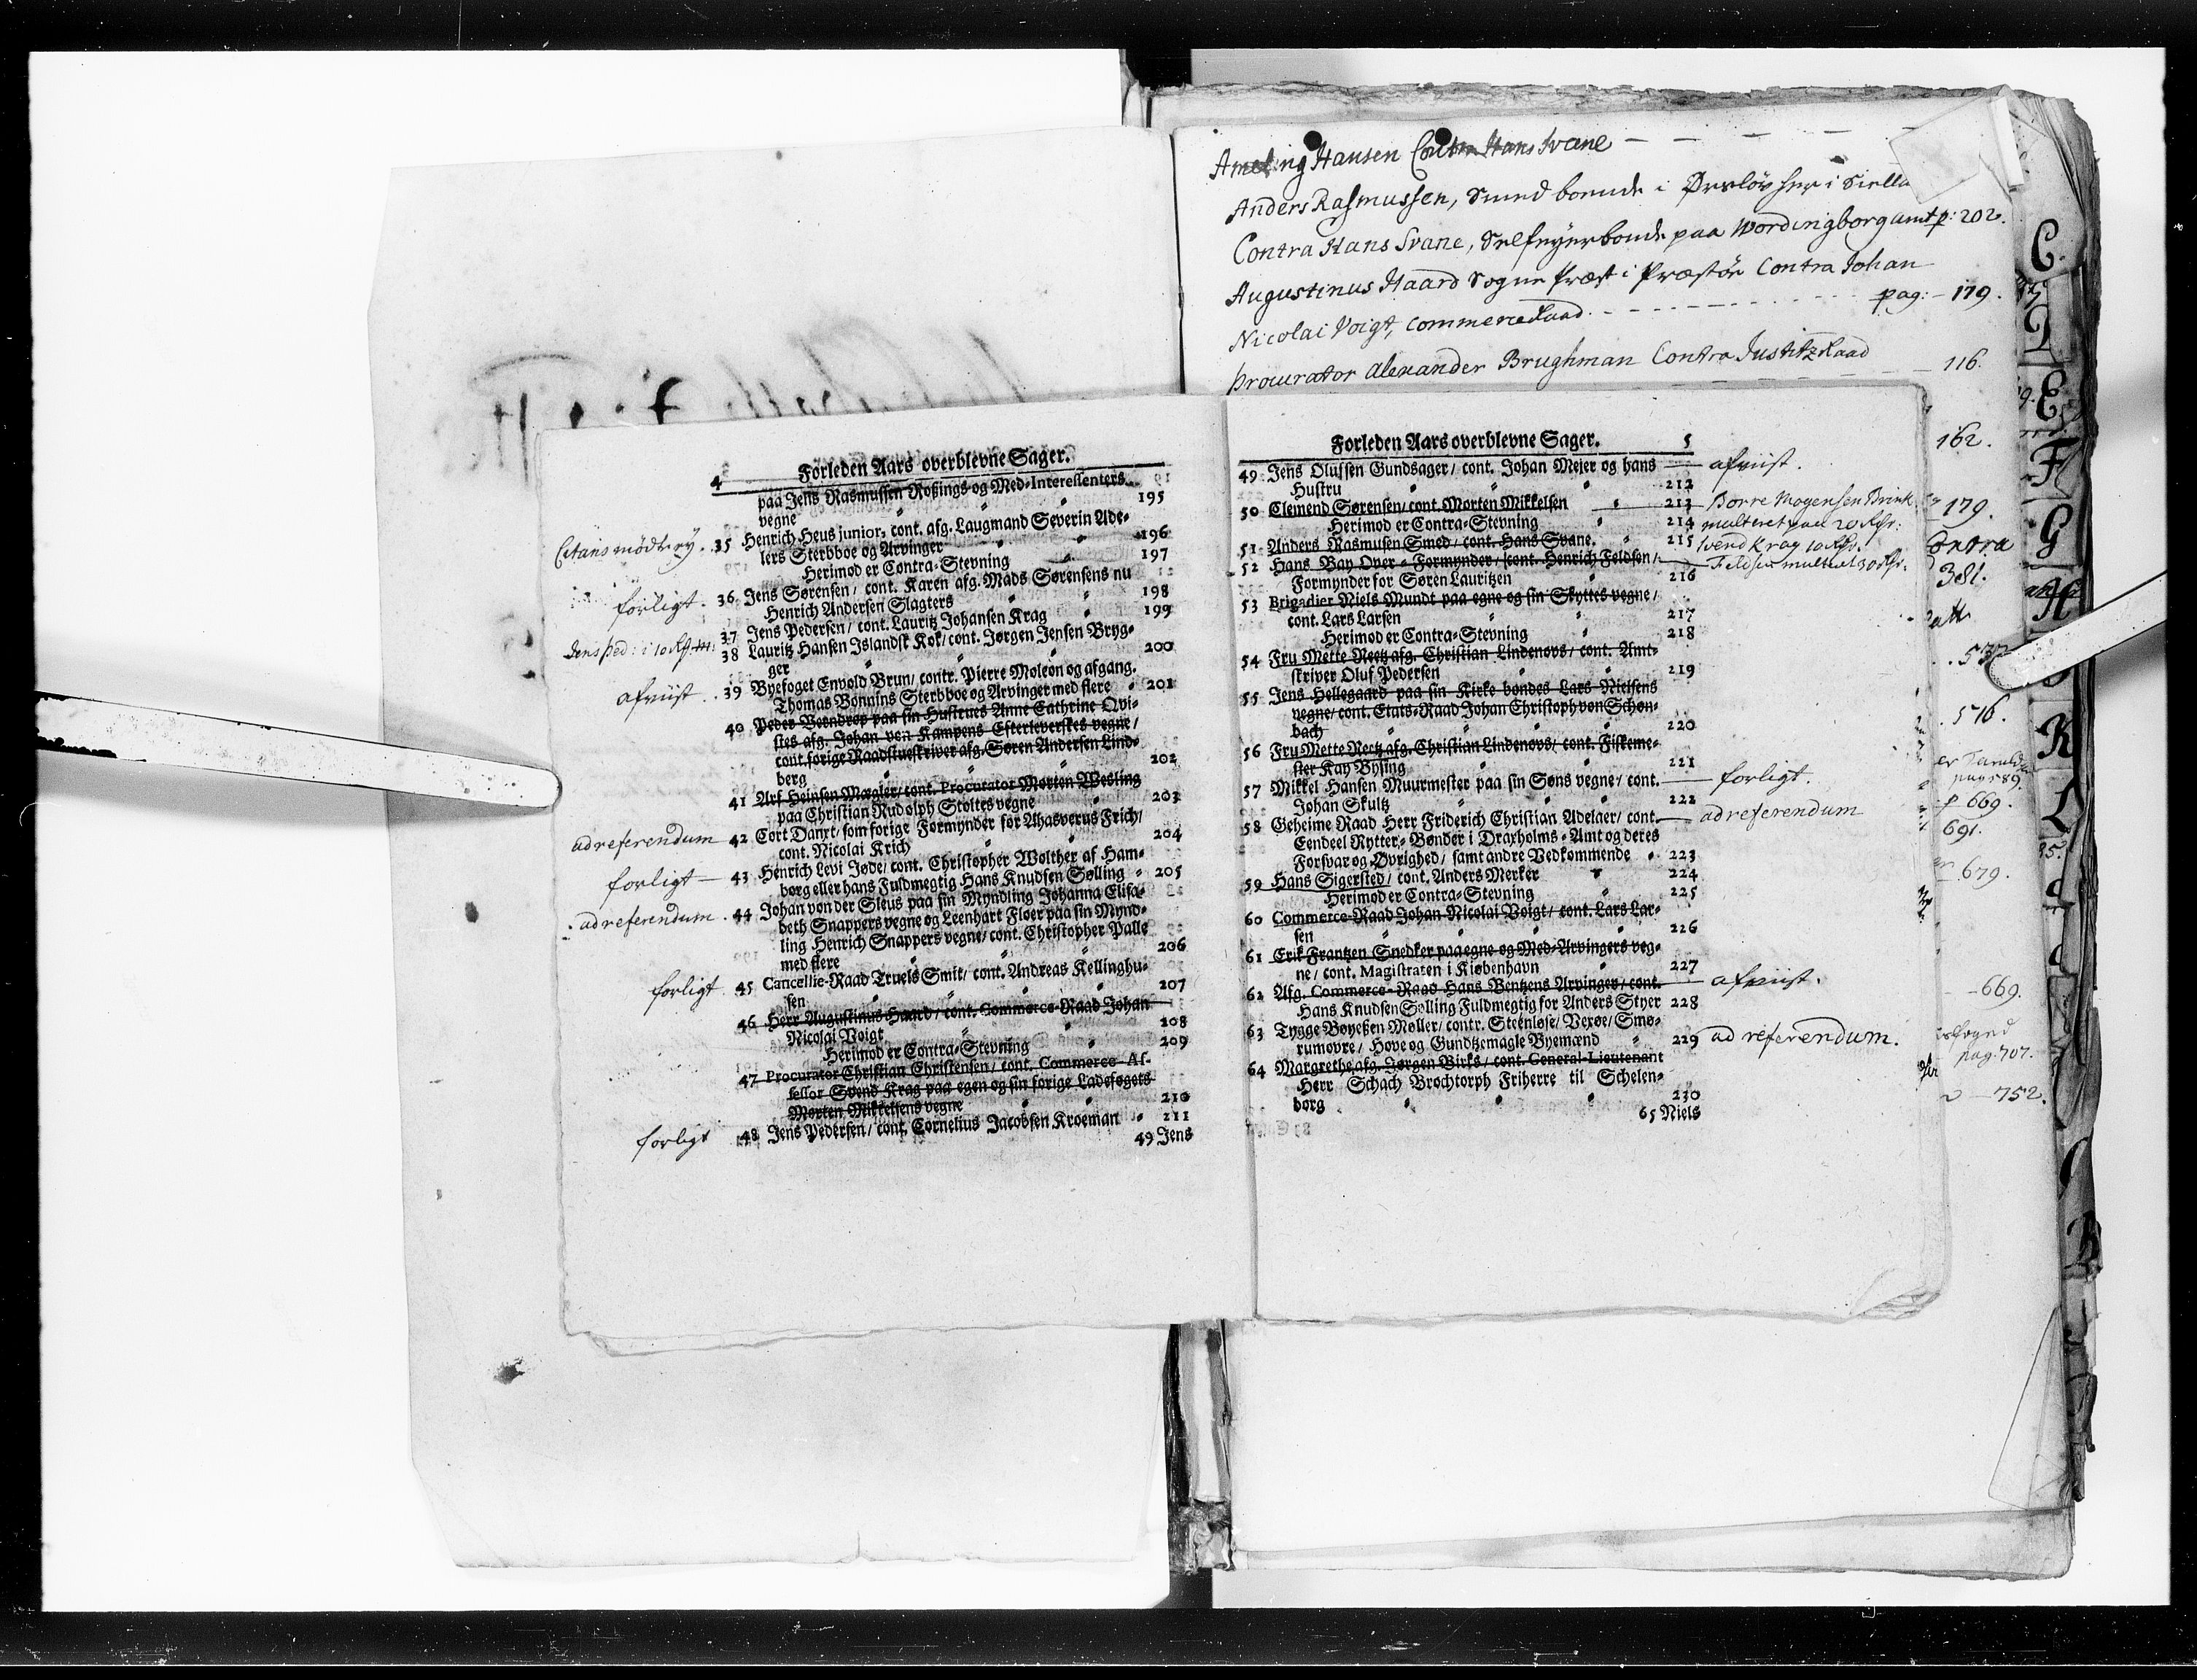 Ameling Hansen Contra Hans Svane
Anders Rasmussen, Smed boende i Ørsløv
Contra Hans Svane, Selfeyerbonde paa Wordingborg amt p: 202.
Augustinus Haard Sogne Præst i Præstøe Contra Johan
Nicolai Voigt, Commerce Raad. pag: 179.
Procurator Alexander Brughman Contra Justitz Raad
116.
4
Forleden Aars overblevne Sager.
paa Jens Rasmussen Roßings og Med-Interessenters
vegne 195
35 Henrich Heus junior, cont. afg. Laugmand Severin Ade-
lers Sterbboe og Arvinger 196
Herimod er Contra-Stevning 197
forligt. 36 Jens Sørensen/ cont. Karen afg. Mads Sørensens nu
Henrich Andersen Slagters 198
37 Jens Pedersen/ cont. Lauritz Johansen Krag 199
38 Lauritz Hansen Islandsk Kok/ cont. Jørgen Jensen Bryg-
ger 200
afviist. 39 Byefoget Envold Brun/ contr. Pierre Moleon og afgang.
Thomas Bonnins Sterbboe og Arvinger med flere 201
40 Peder Berndrop paa sin Hustrues Anne Cathrine Qvi-
stes afg. Johan von Kampens Efterleverskes vegne/
cont. forige Raadstueskriver afg. Søren Andersen Lind-
berg 202
41 Arf Heinsen Mægler/ cont. Procurator Morten Wesling
paa Christian Rudolph Stoltes vegne 203
ad referendum 42 Cort Danxt/ som forige Formynder for Ahasverus Frich/
cont. Nicolai Krich 204
forligt 43 Henrich Levi Jøde/ cont. Christopher Wolther af Ham-
borg eller hans Fuldmegtig Hans Knudsen Sølling 205
ad referendum. 44 Johan von der Sleus paa sin Myndling Johanna Elisa-
beth Snappers vegne og Leenhart Floer paa sin Mynd-
ling Henrich Snappers vegne/ cont. Christopher Palle
med flere 206
forligt 45 Cancellie-Raad Truels Smit/ cont. Andreas Kellinghu-
sen 207
46 Herr Augustinus Haard/ cont. Commerce-Raad Johan
Nicolai Voigt 208
Herimod er Contra-Stevning 209
47 Procurator Christian Christensen/ cont. Commerce-As-
sessor Svend Krag paa egen og sin forige Ladefogets
Morten Mikkelsens vegne 210
forligt 48 Jens Pedersen/ cont. Cornelius Jacobsen Kroeman 211
49 Jens
Forleden Aars overblevne Sager. 5
49 Jens Olufsen Gundsager/ cont. Johan Meier og hans afviist.
Hustru 212
50 Clemend Sørensen/ cont. Morten Mikkelsen 213 Børre Mogensen Brink
Herimod er Contra-Stevning 214 multeret paa 20 Rdr:
51 Anders Rasmusen Smed/ cont. Hans Svane. 215 Svend Krag 10 Rdr.
52 Hans Bay Over-Formynder/ cont. Henrich Feldsen/
Formynder for Søren Lauritzen 216
53 Brigadier Niels Mundt paa egne og sin Skyttes vegne/
cont. Lars Larsen 217
Herimod er Contra-Stevning 218
54 Fru Mette Reetz afg. Christian Lindenovs/ cont. Amt-
skriver Oluf Pedersen 219
55 Jens Hellegaard paa sin Kirke bondes Lars Nielsens
vegne/ cont. Etats-Raad Johan Christoph von Schøn-
bach 220
56 Fru Mette Reetz afg. Christian Lindenovs/ cont. Fiskeme-
ster Kay Bysing 221
57 Mikkel Hansen Muurmester paa sin Søns vegne/ cont. forligt.
Johan Skultz 222
58 Geheime Raad Herr Friderich Christian Adelaer/ cont. ad referendum
Eendeel Rytter-Bønder i Draxholms-Amt og deres
Forsvar og Øvrighed/ samt andre Vedkommende 223
59 Hans Sigersted/ cont. Anders Merker 224
Herimod er Contra-Stevning 225
60 Commerce-Raad Johan Nicolai Voigt/ cont. Lars Lar-
sen 226
61 Erik Frantzen Snedker paa egne og Med-Arvingers veg-
ne/ cont. Magistraten i Kiøbenhavn 227
62 Afg. Commerce-Raad Hans Bentzens Arvinger/ cont. afviist.
Hans Knudsen Sølling Fuldmegtig for Anders Styer 228
63 Tygge Bøyeßen Møller/ contr. Steenløse/ Vexøe/ Smø-
rumovre/ Hove og Gundtzemagle Byemænd 229 ad referendum.
64 Margrethe afg. Jørgen Birks/ cont. General-Lieutenant
Herr Schach Brochtorph Friherre til Schelen-
borg 230
65 Niels
162.
179.
Contra
381.
576.
669.
691.
679.
669.
pag: 707.
752.
C
D
E
F
G
H
K
L